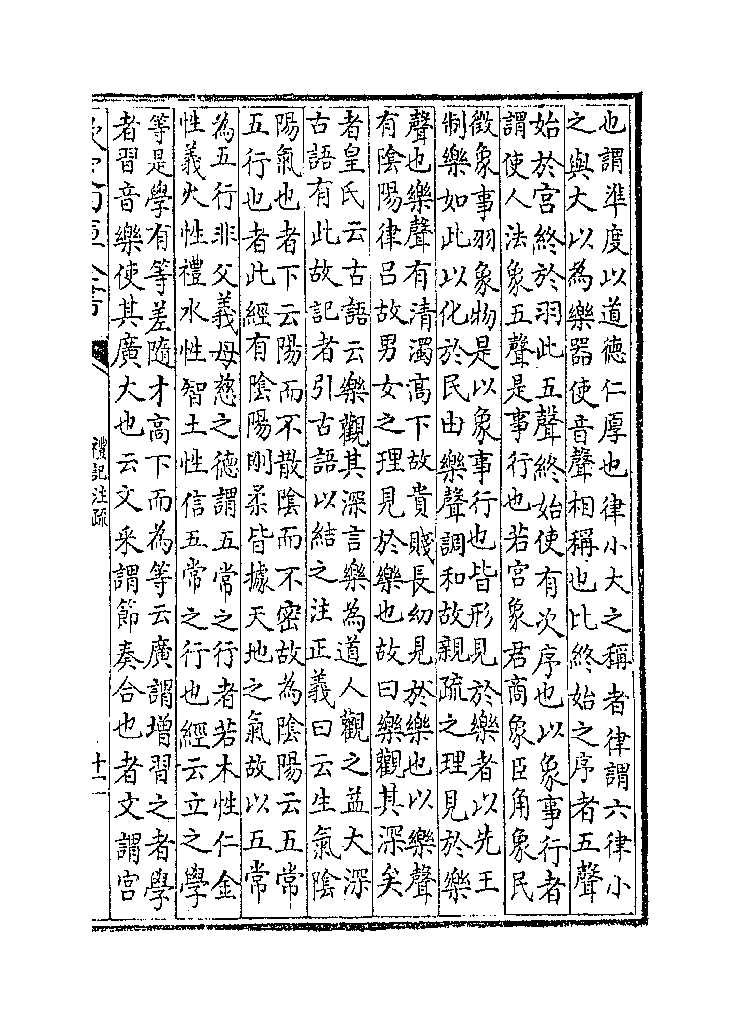 也謂準度以道德仁厚也律小大之稱者律謂六律小
之與大以為樂器使音聲相稱也比終始之序者五聲
始於宮終於羽此五聲終始使有次序也以象事行者
謂使人法象五聲是事行也若宮象君商象臣角象民
徵象事羽象物是以象事行也皆形見於樂者以先王
制樂如此以化於民由樂聲調和故親疏之理見於樂
聲也樂聲有清濁高下故貴賤長幼見於樂也以樂聲
有陰陽律呂故男女之理見於樂也故曰樂觀其深矣
者皇氏云古語云樂觀其深言樂為道人觀之益大深
古語有此故記者引古語以結之注正義曰云生氣陰
陽氣也者下云陽而不散陰而不密故為陰陽云五常
五行也者此經有陰陽剛柔皆據天地之氣故以五常
為五行非父義母慈之德謂五常之行者若木性仁金
性義火性禮水性智土性信五常之行也經云立之學
等是學有等差隨才高下而為等云廣謂增習之者學
者習音樂使其廣大也云文采謂節奏合也者文謂宮
禮記注疏
十二